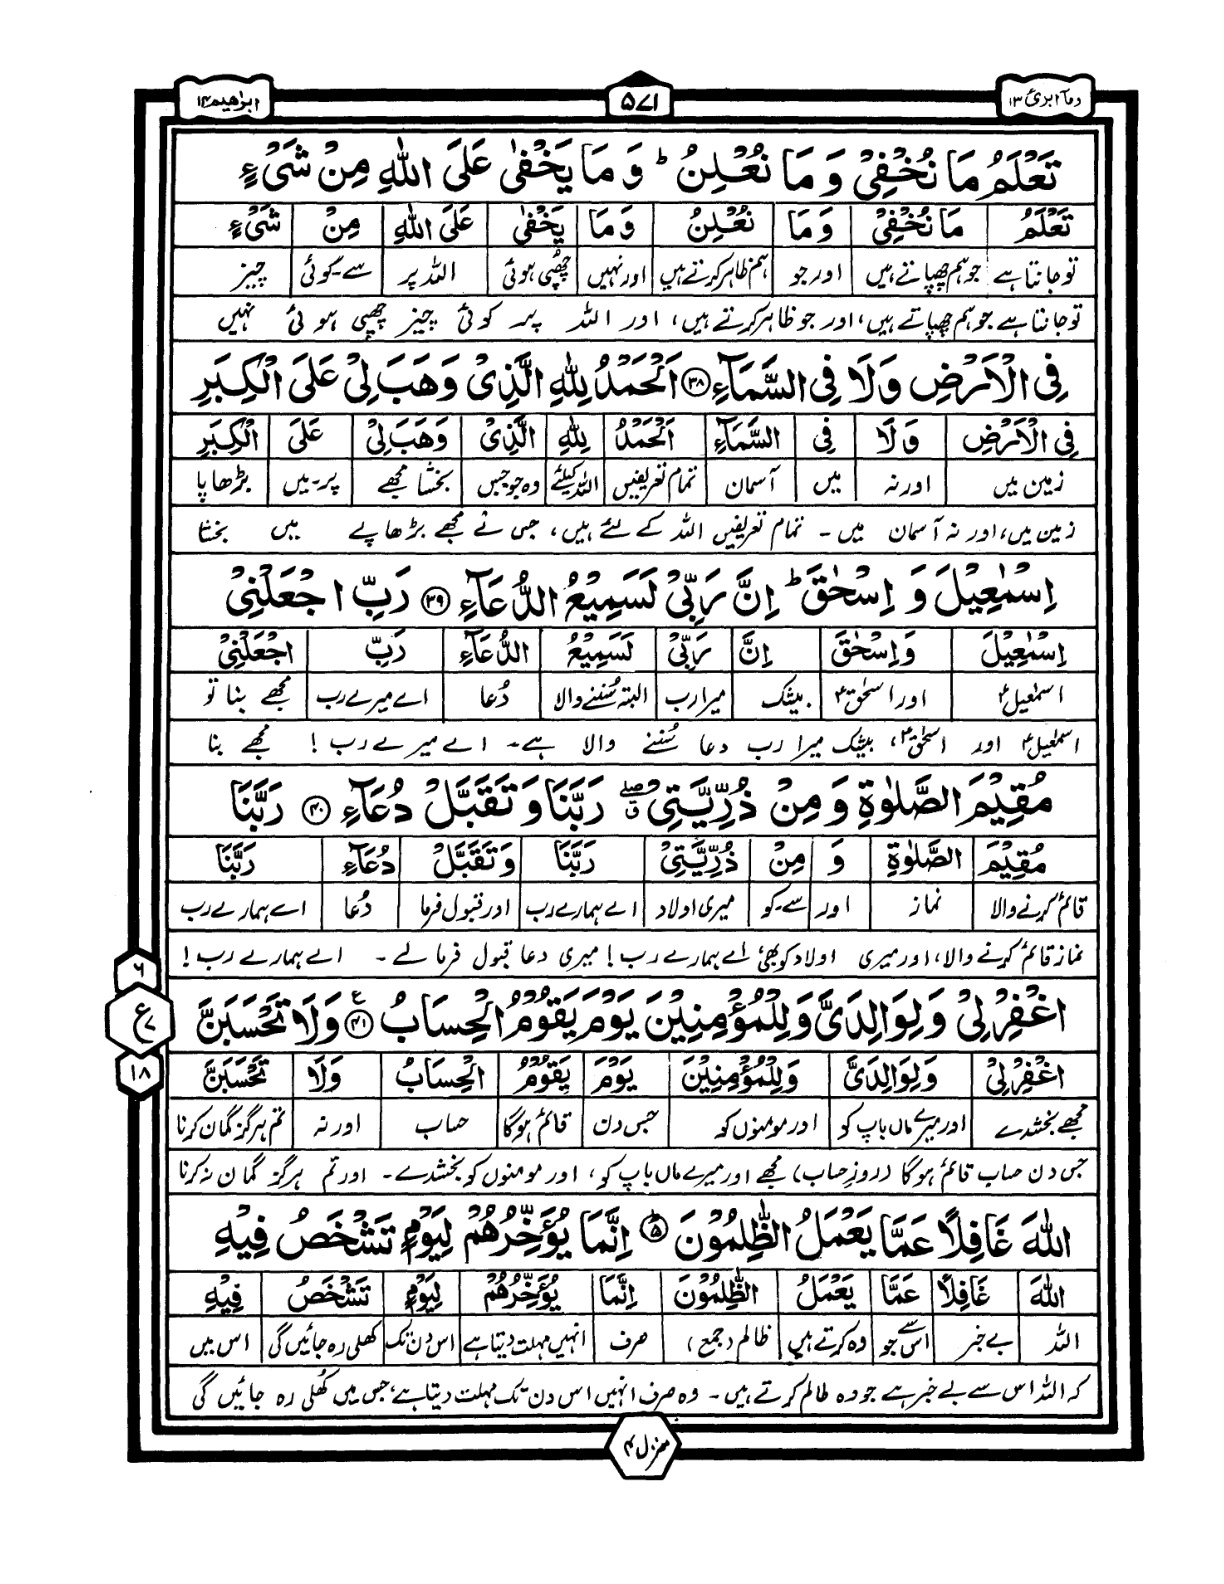 وما ابرئ ۱۳
۵۷۱
ابراهيم ۱۴
تَعْلَمُ مَا نُخْفِيْ وَ مَا نُعْلِنُ ؕ وَ مَا يَخْفٰى عَلَى اللّٰهِ مِنْ شَيْءٍ
تَعْلَمُ مَا نُخْفِيْ وَ مَا نُعْلِنُ وَ مَا يَخْفٰى عَلَى اللّٰهِ مِنْ شَيْءٍ
تو جانتا ہے جو ہم چھپاتے ہیں اور جو ہم ظاہر کرتے ہیں اور نہیں چھپی ہوئی اللہ پر سے۔کوئی چیز
تو جانتا ہے جو ہم چھپاتے ہیں، اور جو ظاہر کرتے ہیں، اور اللہ پر کوئی چیز چھپی ہوئی نہیں
فِي الْاَرْضِ وَلَا فِي السَّمَآءِ ۳۸ اَلْحَمْدُ لِلّٰهِ الَّذِيْ وَهَبَ لِيْ عَلَى الْكِبَرِ
فِي الْاَرْضِ وَلَا فِي السَّمَآءِ اَلْحَمْدُ لِلّٰهِ الَّذِيْ وَهَبَ لِيْ عَلَى الْكِبَرِ
زمین میں اور نہ میں آسمان تمام تعریفیں اللہ کیلئے وہ جو جس بخشا مجھے پر۔میں بڑھاپا
زمین میں، اور نہ آسمان میں ۔ تمام تعریفیں اللہ کے لئے ہیں، جس نے مجھے بڑھاپے میں بخشا
اِسْمٰعِيْلَ وَ اِسْحٰقَ ؕ اِنَّ رَبِّيْ لَسَمِيْعُ الدُّعَآءِ ۳۹ رَبِّ اجْعَلْنِيْ
اِسْمٰعِيْلَ وَ اِسْحٰقَ اِنَّ رَبِّيْ لَسَمِيْعُ الدُّعَآءِ رَبِّ اجْعَلْنِيْ
اسمٰعیلؑ اور اسحٰقؑ بیشک میرا رب البتہ سُننے والا دُعا اے میرے رب مجھے بنا تو
اسمٰعیلؑ اور اسحٰقؑ، بیشک میرا رب دعا سُننے والا ہے۔ اے میرے رب ! مجھے بنا
مُقِيْمَ الصَّلٰوةِ وَ مِنْ ذُرِّيَّتِيْ ۖۗ رَبَّنَا وَ تَقَبَّلْ دُعَآءِ ۴۰ رَبَّنَا
مُقِيْمَ الصَّلٰوةِ وَ مِنْ ذُرِّيَّتِيْ رَبَّنَا وَ تَقَبَّلْ دُعَآءِ رَبَّنَا
قائم کرنے والا نماز اور سے۔کو میری اولاد اے ہمارے رب اور قبول فرما دُعا اے ہمارے رب
نماز قائم کرنے والا، اور میری اولاد کو بھی، اے ہمارے رب! میری دعا قبول فرما لے ۔ اے ہمارے رب !
۶
ع
۷
۱۸
اغْفِرْ لِيْ وَ لِوَالِدَيَّ وَ لِلْمُؤْمِنِيْنَ يَوْمَ يَقُوْمُ الْحِسَابُ ۴۱ وَلَا تَحْسَبَنَّ
اغْفِرْ لِيْ وَ لِوَالِدَيَّ وَ لِلْمُؤْمِنِيْنَ يَوْمَ يَقُوْمُ الْحِسَابُ وَلَا تَحْسَبَنَّ
مجھے بخشدے اور میرے ماں باپ کو اور مومنوں کو جس دن قائم ہوگا حساب اور نہ تم ہرگز گمان کرنا
جس دن حساب قائم ہوگا (روزِ حساب) مجھے اور میرے ماں باپ کو، اور مومنوں کو بخشدے۔ اور تم ہرگز گمان نہ کرنا
اللّٰهَ غَافِلًا عَمَّا يَعْمَلُ الظّٰلِمُوْنَ ؕ۵ اِنَّمَا يُؤَخِّرُهُمْ لِيَوْمٍ تَشْخَصُ فِيْهِ
اللّٰهَ غَافِلًا عَمَّا يَعْمَلُ الظّٰلِمُوْنَ اِنَّمَا يُؤَخِّرُهُمْ لِيَوْمٍ تَشْخَصُ فِيْهِ
اللہ بے خبر اس سے جو وہ کرتے ہیں ظالم (جمع) صرف انہیں مہلت دیتا ہے اس دن تک کھلی رہ جائیں گی اس میں
کہ اللہ اس سے بے خبر ہے جو وہ ظالم کرتے ہیں ۔ وہ صرف انہیں اس دن تک مہلت دیتا ہے، جس میں کُھلی رہ جائیں گی
منزل ۳